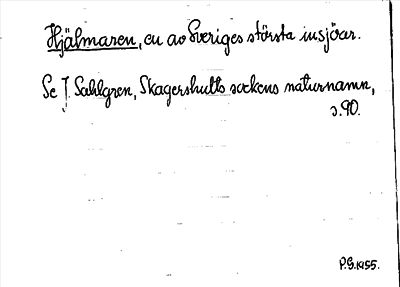 Hjälmaren, en av Sveriges största insjöar.
Se J. Sahlgren, Skagershults sockens naturnamn,
s. 90.
P.G. 1955.